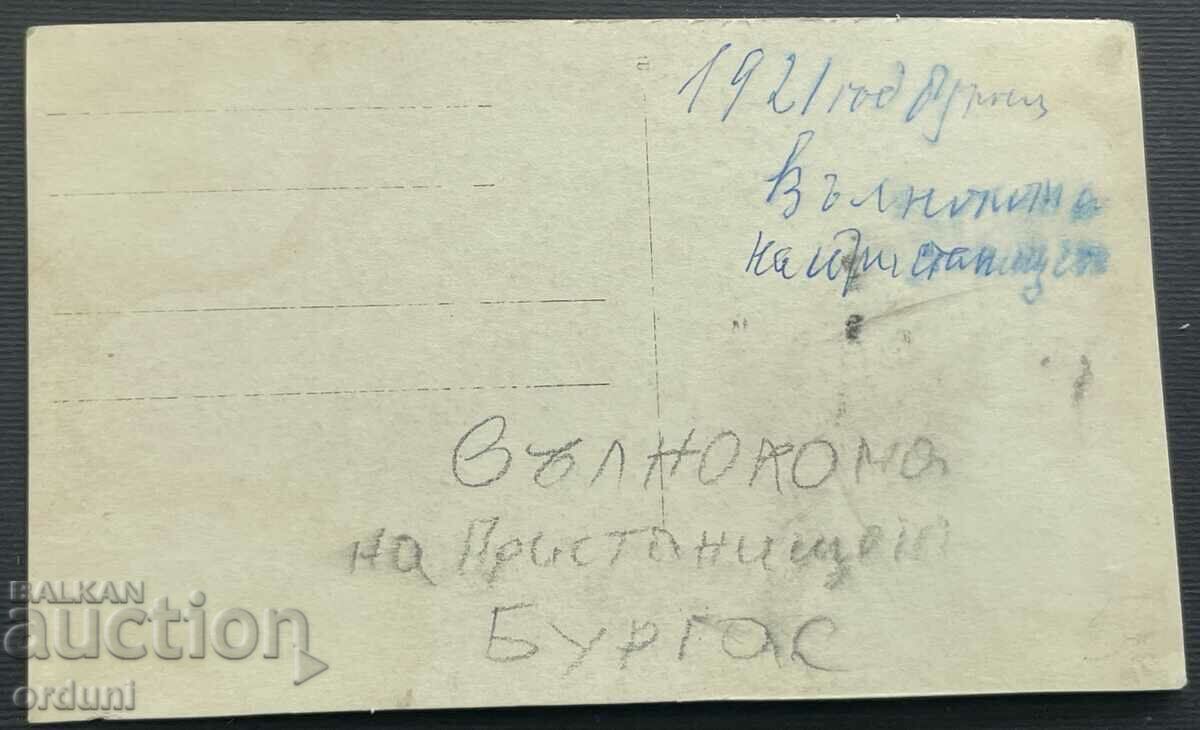 1921 год
Вълнолома
на пристанището
Вълнолома
на Пристанището
Бургас
BALKAN
auction
orduni